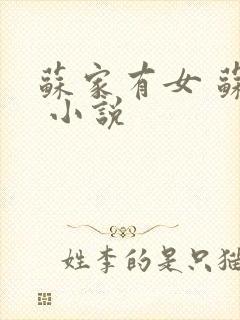 蘇家有女 蘇
小說
姓李的是只猫